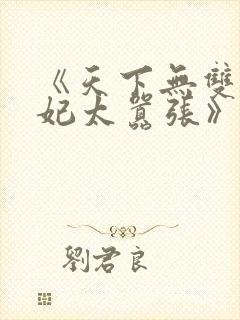 《天下無雙
妃太囂張》
劉君良